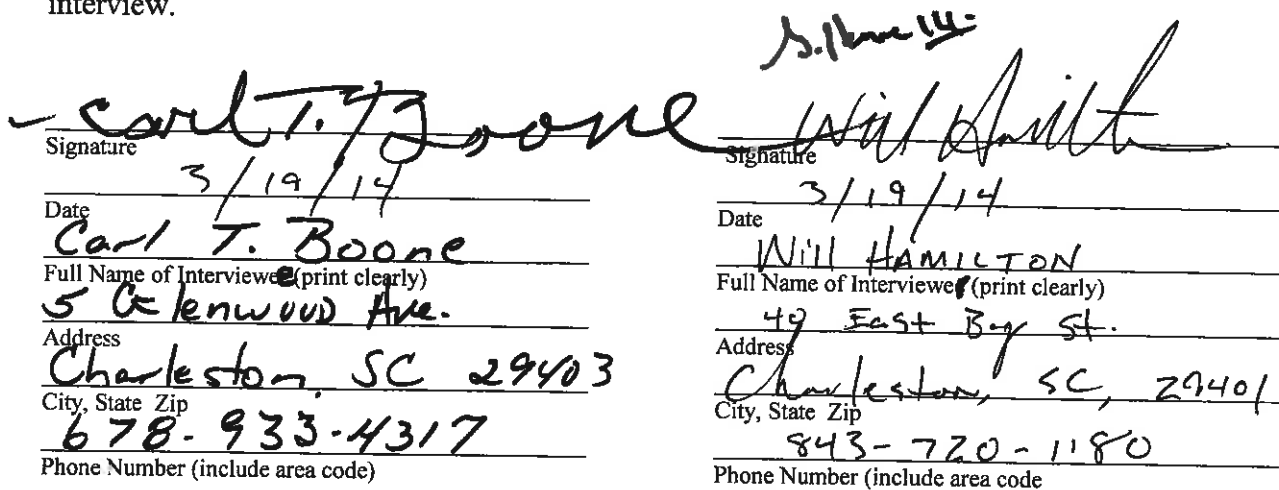 interview.
Carl T. Boone
Signature
3/19/14
Date
Carl T. Boone
Full Name of Interviewee (print clearly)
5 Glenwood Ave.
Address
Charleston, SC 29403
City, State Zip
678-933-4317
Phone Number (include area code)
III
Will Hamilt
Signature
3/19/14
Date
Will HAMILTON
Full Name of Interviewer (print clearly)
40 East Bay St.
Address
Charleston, SC, 29401
City, State Zip
843-720-1180
Phone Number (include area code